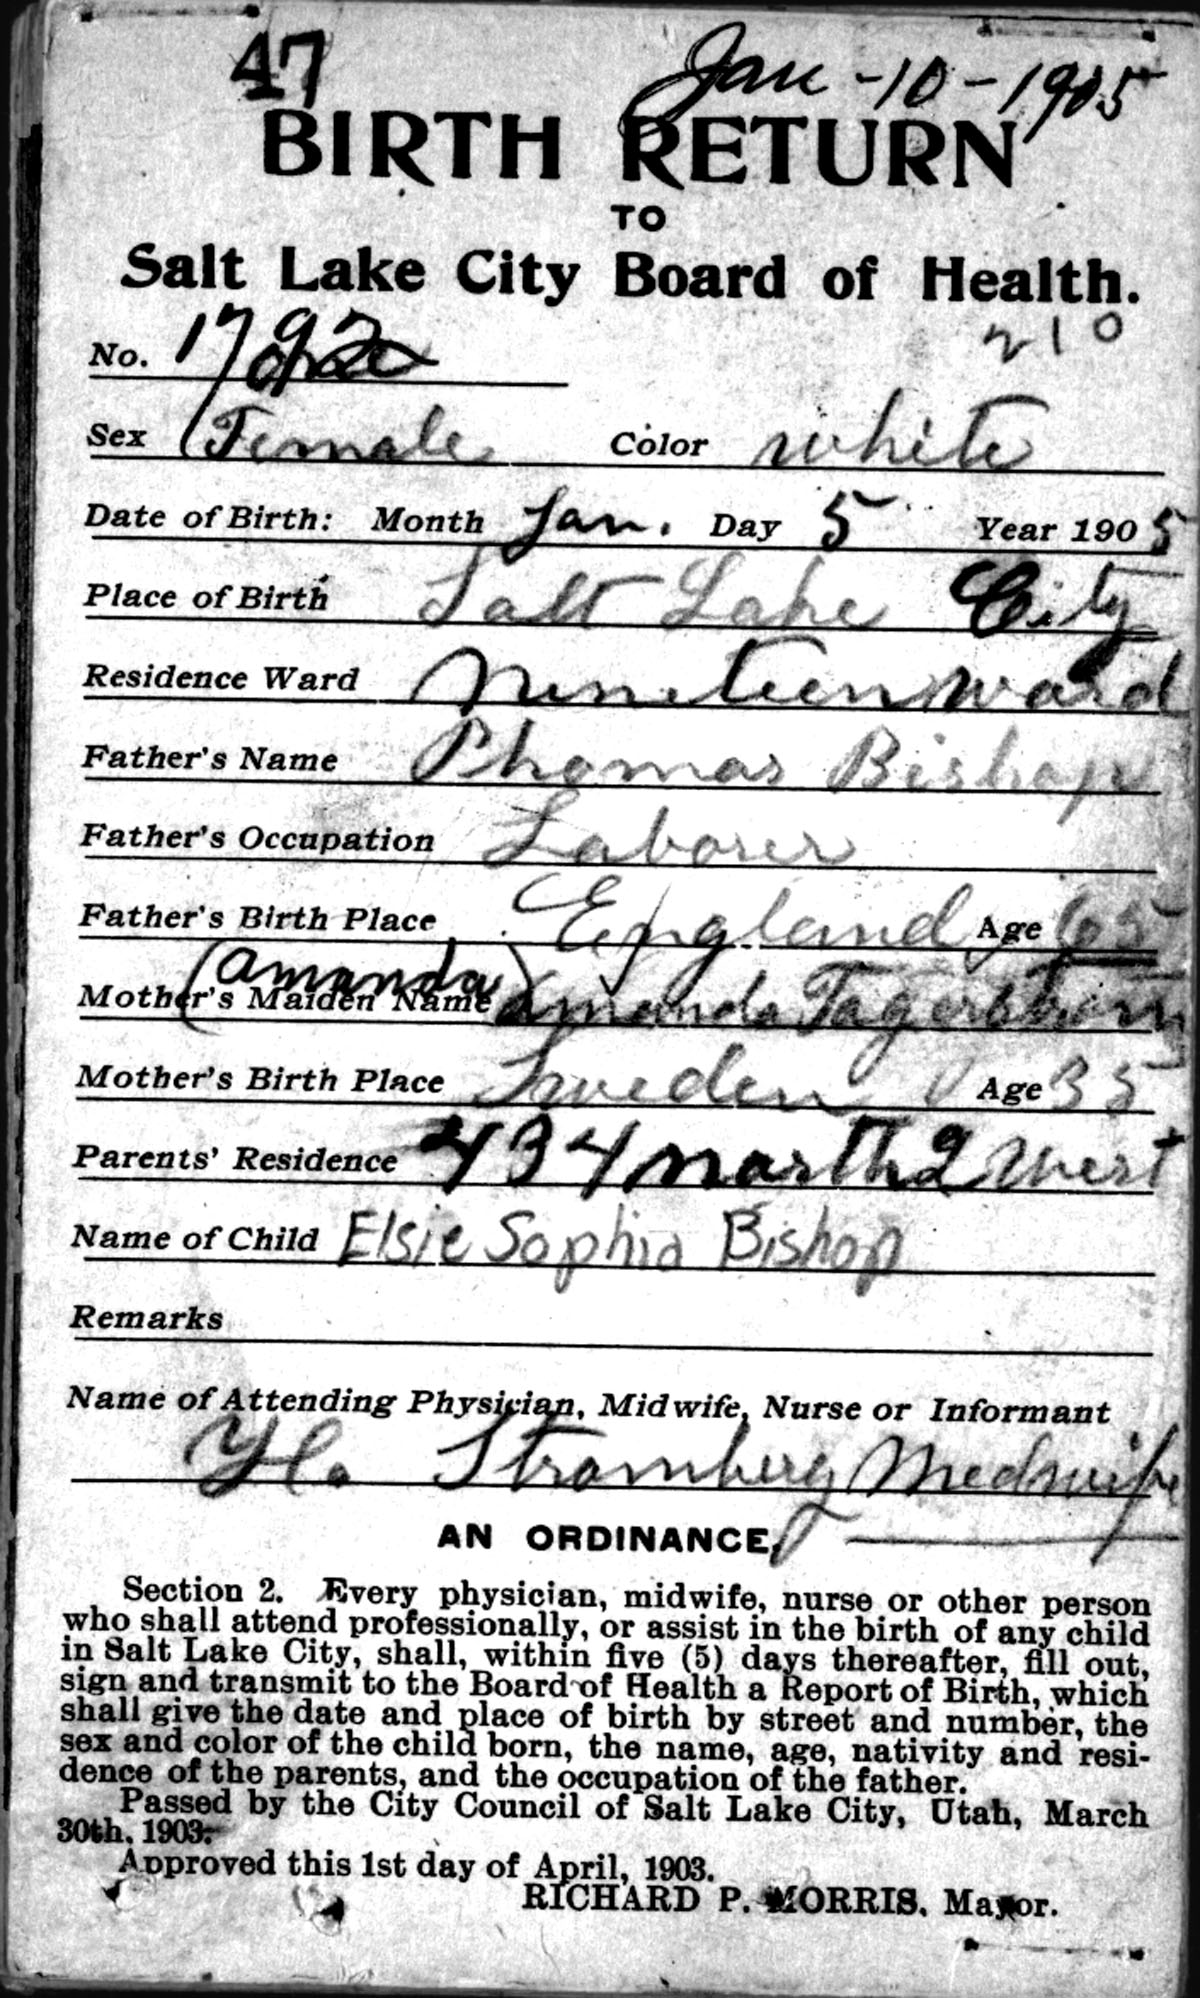 47 Jan - 10 - 1905
BIRTH RETURN
TO
Salt Lake City Board of Health.
210
No. 1792
Sex Female Color white
Date of Birth: Month Jan. Day 5 Year 1905
Place of Birth Salt Lake City
Residence Ward Nineteen ward
Father's Name Thomas Bishop
Father's Occupation Laborer
Father's Birth Place England Age 65
(Amanda)
Mother's Maiden Name Amanda
Mother's Birth Place Sweden Age 35
Parents' Residence 434 north 2 West
Name of Child Elsie Sophia Bishop
Remarks
Name of Attending Physician, Midwife, Nurse or Informant
Stromberg Medwife
AN ORDINANCE,
Section 2. Every physician, midwife, nurse or other person
who shall attend professionally, or assist in the birth of any child
in Salt Lake City, shall, within five (5) days thereafter, fill out,
sign and transmit to the Board of Health a Report of Birth, which
shall give the date and place of birth by street and number, the
sex and color of the child born, the name, age, nativity and resi-
dence of the parents, and the occupation of the father.
Passed by the City Council of Salt Lake City, Utah, March
30th, 1903.
Approved this 1st day of April, 1903.
RICHARD P. MORRIS, Mayor.